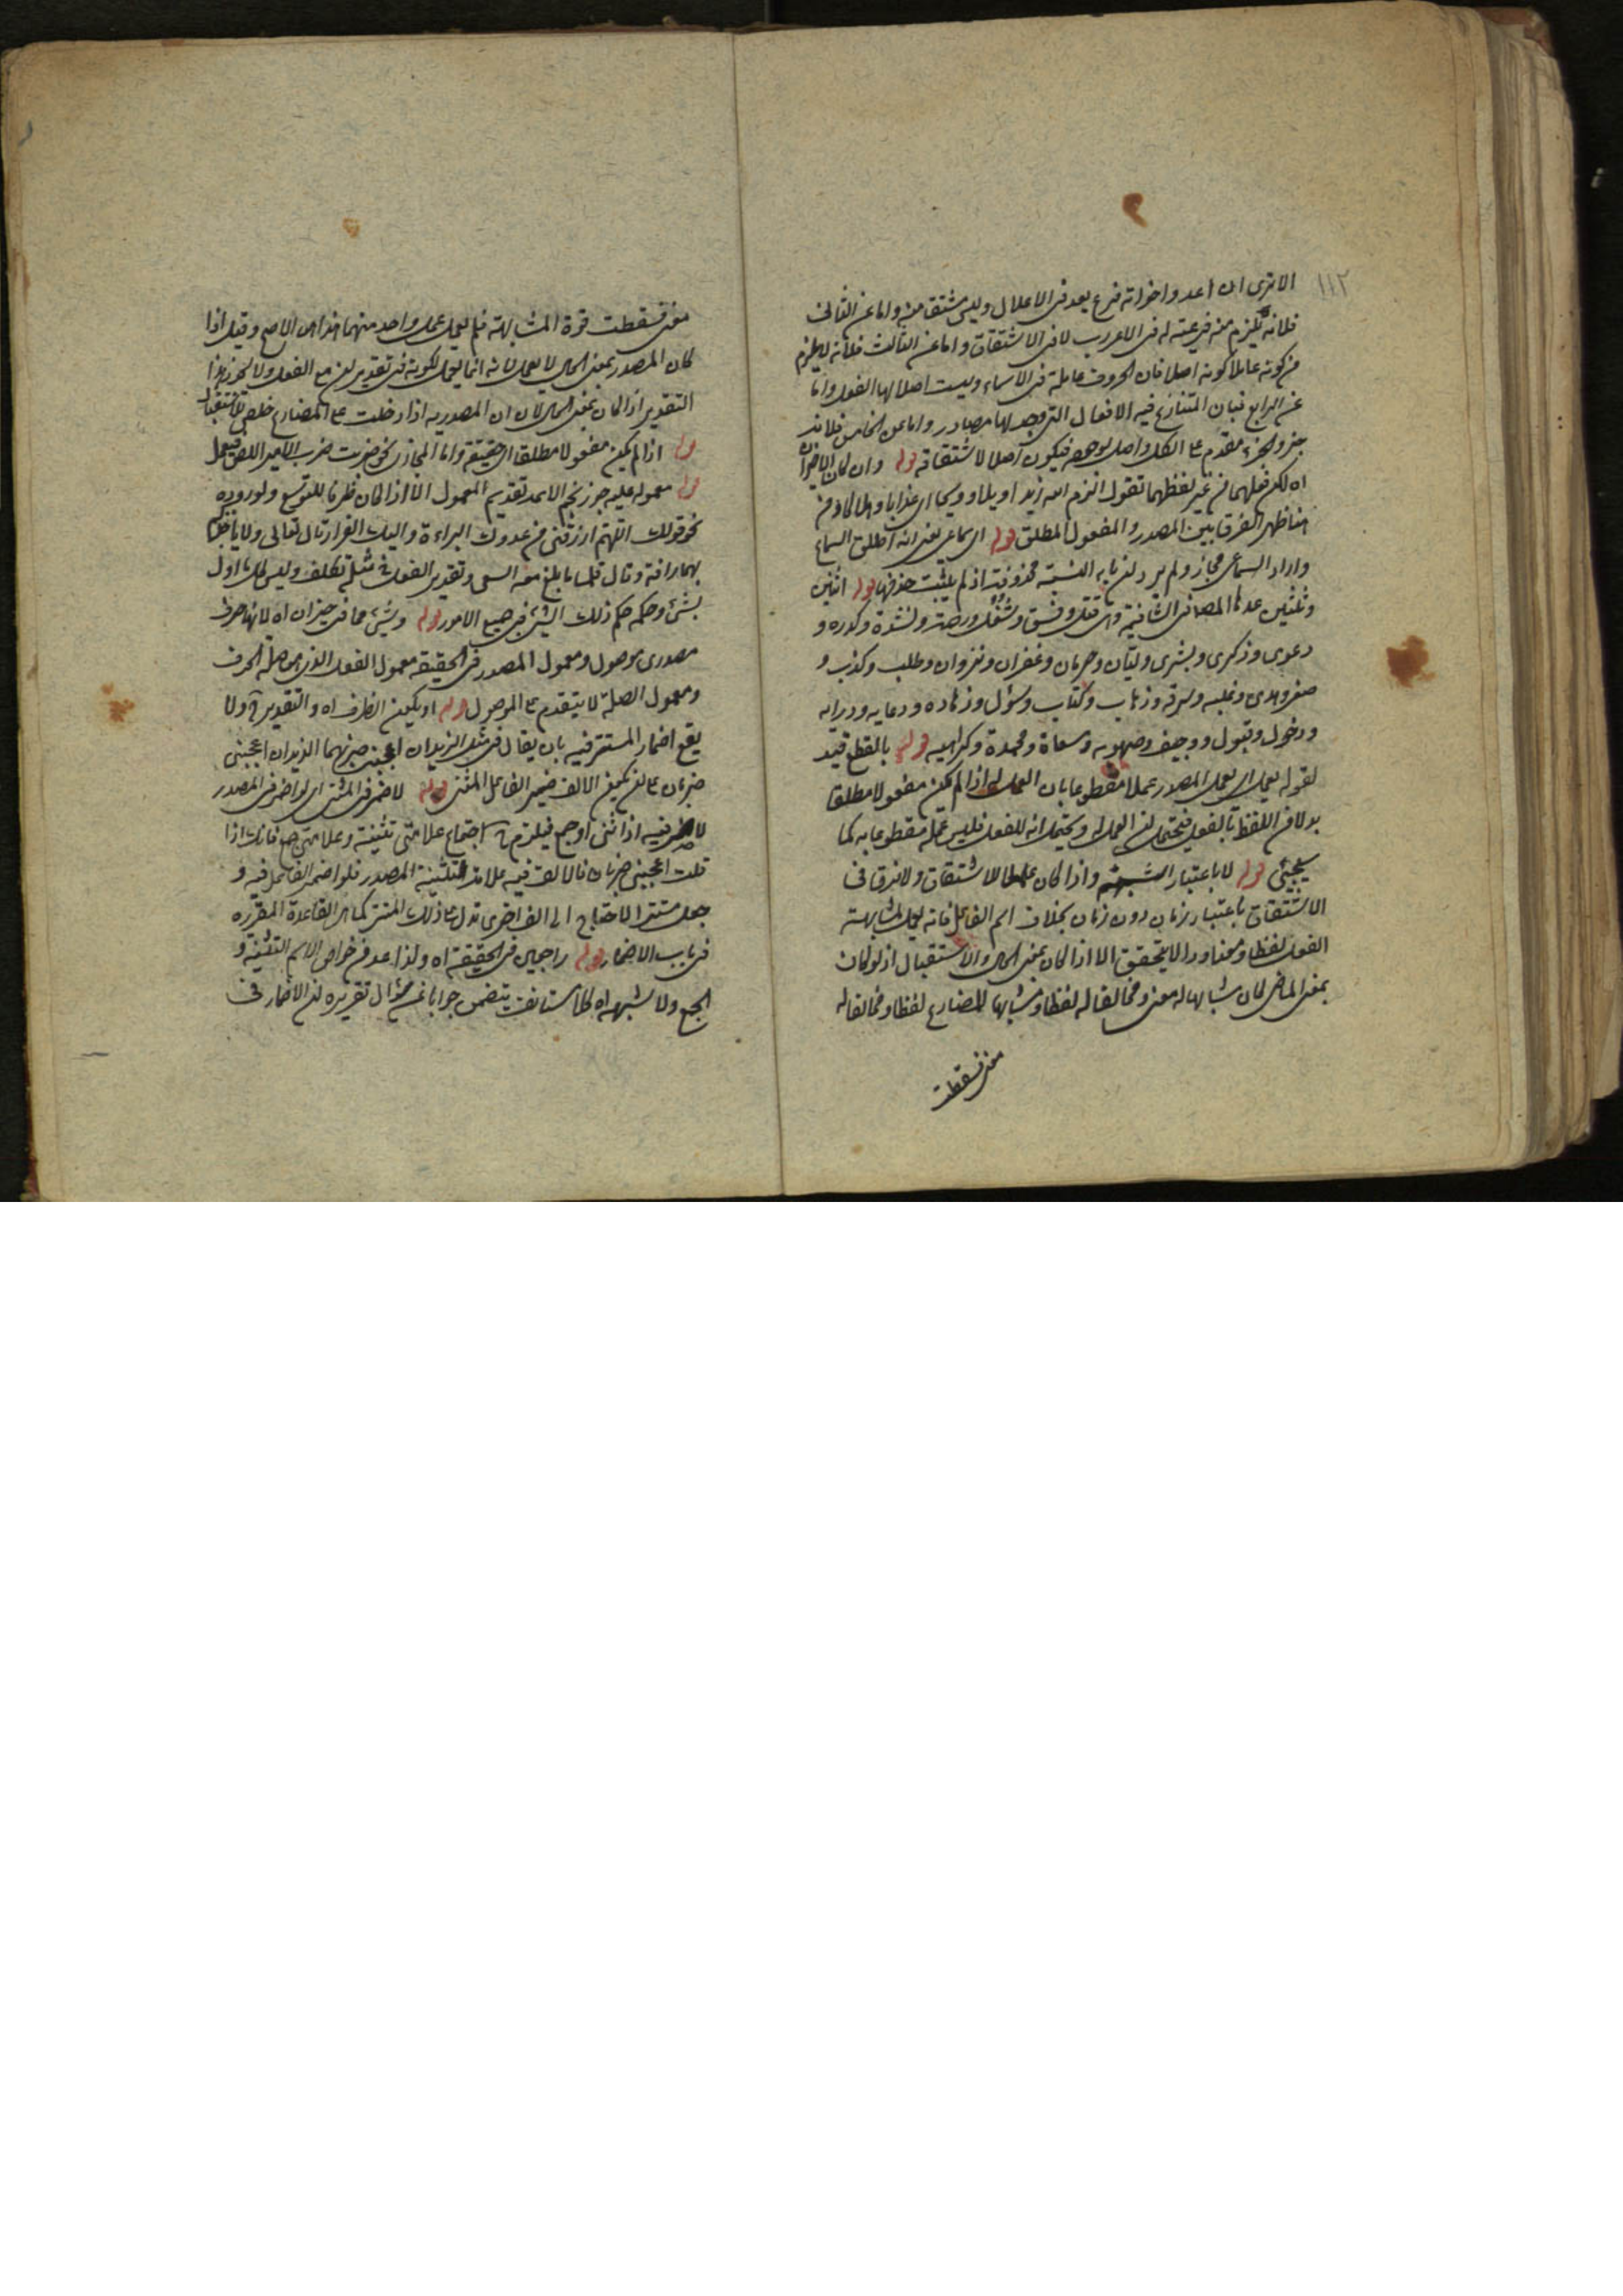 ١١٢
الا ترى ان اعد واخواته فرع يعد فى الاعلال وليس مشتقا منه واما عن الثانى
فلانه يلزم منه فرعيته له فى الاعراب لا فى الاشتقاق واما عن الثالث فلانه لا يلزم
من كونه عاملا كونه اصلا فان الحروف عاملة فى الاسماء وليست اصلا لها الفعل واما
عن الرابع فبان المتنازع فيه الافعال التى وجد لها مصادر واما عن الخامس فلانه
جزء والجزء مقدم على الكل واصل بوجه فيكون اصلا لاشتقاقه قوله وان كان الاخيران
اه لكن فعلهما من غير لفظهما تقول الزم الله زيدا ويلا وويحا اى عذابا وهلاكا ومن
هنا ظهر الفرق بين المصدر والمفعول المطلق قوله اى سماعى يعنى انه اطلق السماع
واراد السماعى مجازا ولم يرد ان ياء النسبة محذوفة اذ لم يثبت حذفها قوله اثنين
وثلثين عدها المصنف فى الشافية وهى قتل وفسق وشغل ورحمة ونشدة وكدرة و
دعوى وذكرى وبشرى وليان وحرمان وغفران ونزوان وطلب وكذب و
صغر وهدى وغلبه وسرقه وذهاب وكتاب وسؤل وزهاده ودعايه ودرايه
ودخول وقبول ووجيف وصهوبه ومسعاة ومحمدة وكراهيه قوله بالقطع قيد
لقوله يعمل اى يعمل المصدر عملا مقطوعا بان العمل له اذا لم يكن مفعولا مطلقا
بدلا من اللفظ بالفعل فيحتمل ان العمل له ويحتمل انه للفعل فليس عمله مقطوعا به كما
يجئى قوله لا باعتبار الشبه واذا كان عمله للاشتقاق ولا فرق فى
الاشتقاق باعتبار زمان دون زمان بخلاف اسم الفاعل فانه يعمل لمشابهته
الفعل لفظا ومعنا وذا لا يتحقق الا اذا كان بمعنى الحال والاستقبال اذ لو كان
بمعنى الماضى لكان مشابها له معنى ومخالفا له لفظا ومشابها للمضارع لفظا ومخالفا له
معنى فسقطت
معنى فسقطت قوة المشابهة فلم يعمل عمل واحد منهما هذا هو الاصح وقيل اذا
كان المصدر بمعنى الحال لا يعمل لانه انما يعمل لكونه فى تقدير ان مع الفعل ولا يجوز هذا
التقدير اذا كان بمعنى الحال لان ان المصدريه اذا دخلت على المضارع خلصه للاستقبال
قوله اذا لم يكن مفعولا مطلقا اى حقيقة واما المجازى نحو ضربت ضرب الامير اللص فيعمل
قوله معموله عليه جوز نجم الائمه تقديم المعمول الا اذا كان ظرفا للتوسع ولوروده
نحو قولك اللهم ارزقنى من عدوك البراءة واليك الفرار قال تعالى ولا ياخذكم
بهما رافة وقال فلما بلغ معه السعى وتقدير الفعل فى مثله تكلف وليس كل ما اول
بشئ وحكمه حكم ذلك الشئ فى جميع الامور قوله وشئ مما فى حيز ان اه لانها حرف
مصدرى موصول ومعمول المصدر فى الحقيقة معمول الفعل الذى هو صلة الحرف
ومعمول الصلة لا يتقدم على الموصول قوله او يكون الظرف اه والتقدير ولا
يقع اضمار المستتر فيه بان يقال فى مثل الزيدان اعجبنى ضربهما الزيدان اعجبنى
ضربان على ان يكون الالف ضمير الفاعل المثنى قوله لاضمر فى المثنى اى لو اضمر فى المصدر
لاضمر فيه اذا ثنى او جمع فيلزم اجتماع علامتى تثنية وعلامتى جمع فانك اذا
قلت اعجبنى ضربان فالالف فيه علامة لتثنية المصدر فلو اضمر الفاعل فيه و
جعل مستترا لاحتاج الى الف اخرى تدل على ذلك المستتر كما هو القاعدة المقرره
فى باب الاضمار قوله راجعين فى الحقيقة اه ولذا عد من خواص الاسم التثنية و
الجمع ولا شبهه اه كلام استانف يتضمن جوابا عن سؤال تقريره ان الاضمار فى